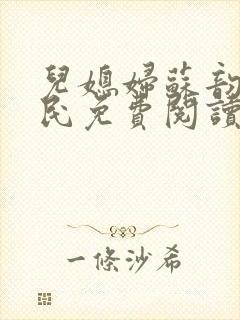 兒媳婦蘇韵
民免費閱讀
一條沙希